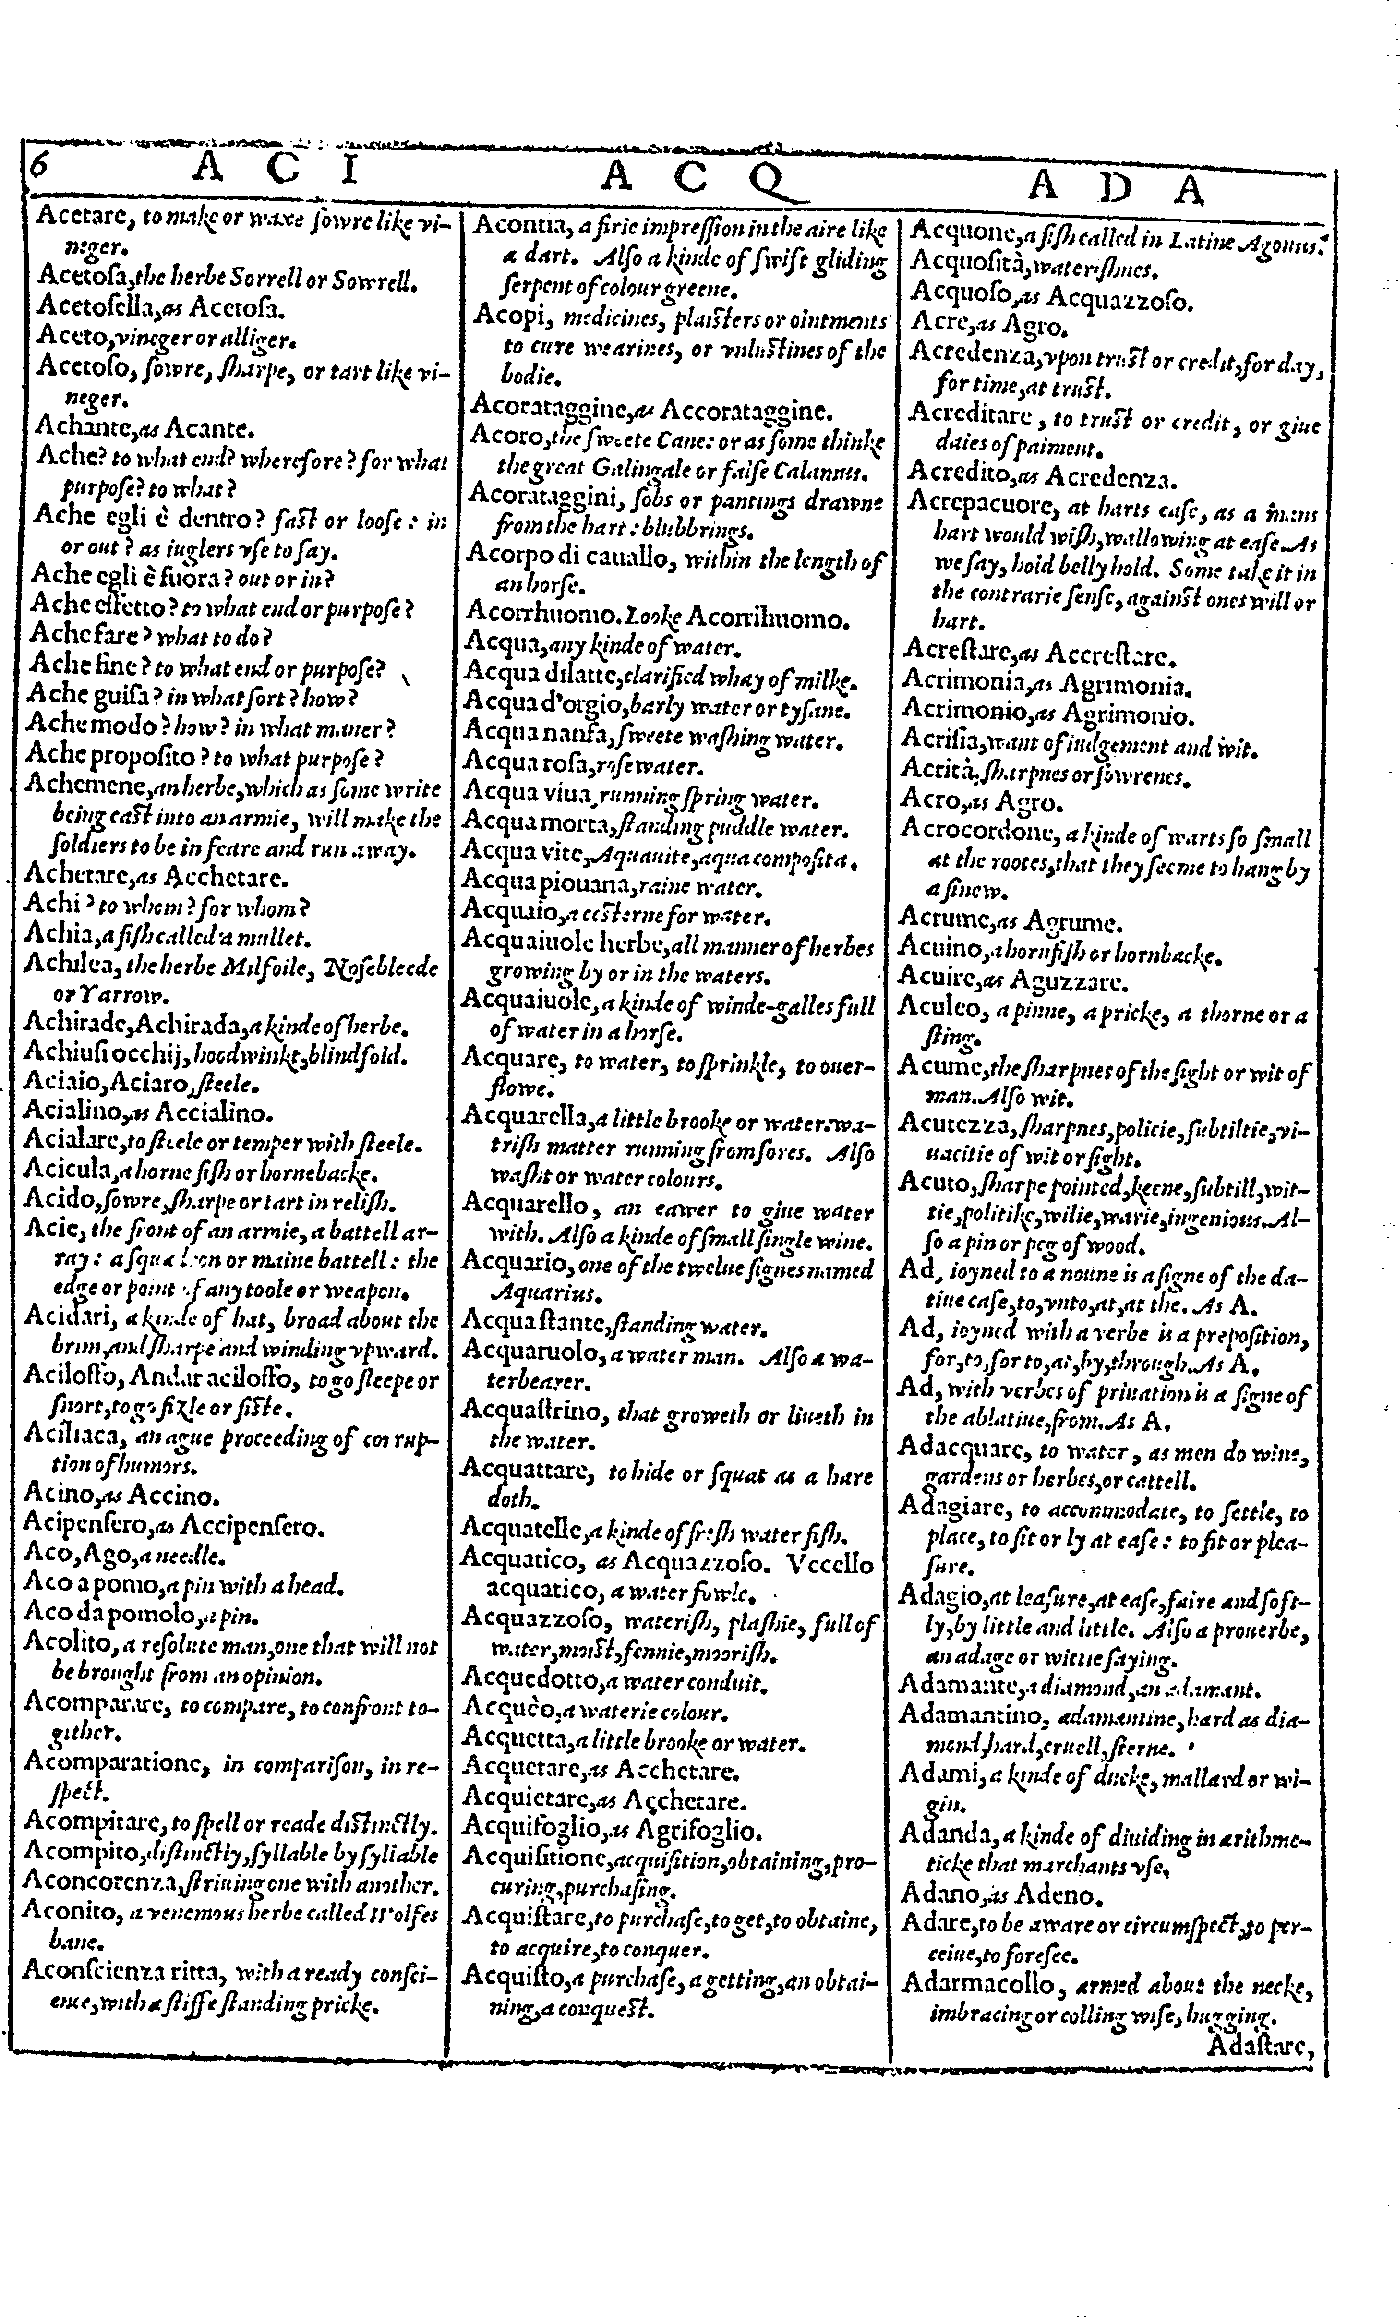 6 A C I A C Q A D A
Acetare, to make or waxe ſowre like vi-
neger.
Acetoſa, the herbe Sorrell or Sowrell.
Acetoſella, as Acetoſa.
Aceto, vineger or alliger.
Acetoſo, ſowre, ſharpe, or tart like vi-
neger.
Achante, as Acante.
Ache? to what end? wherefore? for what
purpoſe? to what?
Ache egli è dentro? faſt or looſe: in
or out? as iuglers vſe to ſay.
Ache egli è fuora? out or in?
Ache effetto? to what end or purpoſe?
Ache fare? what to do?
Ache fine? to what end or purpoſe?
Ache guiſa? in what ſort? how?
Ache modo? how? in what maner?
Ache propoſito? to what purpoſe?
Achemene, an herbe, which as ſome write
being caſt into an armie, will make the
ſoldiers to be in feare and run away.
Achetare, as Acchetare.
Achi? to whom? for whom?
Achia, a fiſh called a mullet.
Achilea, the herbe Milfoile, Noſebleede
or Yarrow.
Achirade, Achirada, a kinde of herbe.
Achiuſi occhij, hoodwinkt, blindfold.
Aciaio, Aciaro, ſteele.
Acialino, as Accialino.
Acialare, to ſteele or temper with ſteele.
Acicula, a horne fiſh or hornebacke.
Acido, ſowre, ſharpe or tart in reliſh.
Acie, the front of an armie, a battell ar-
ray: a ſquadron or maine battell: the
edge or point of any toole or weapon.
Acidari, a kinde of hat, broad about the
brim, and ſharpe and winding vpward.
Aciloffo, Andar aciloffo, to go ſleepe or
ſnort, to go fizle or fiſte.
Aciliaca, an ague proceeding of corrup-
tion of humors.
Acino, as Accino.
Acipenſero, as Accipenſero.
Aco, Ago, a needle.
Aco a pomo, a pin with a head.
Aco da pomolo, a pin.
Acolito, a reſolute man, one that will not
be brought from an opinion.
Acomparare, to compare, to confront to-
gither.
Acomparatione, in compariſon, in re-
ſpect.
Acompitare, to ſpell or reade diſtinctly.
Acompito, diſtinctly, ſyllable by ſyllable
Aconcorenza, ſtriuing one with another.
Aconito, a venemous herbe called Wolfes
bane.
Aconſcienza ritta, with a ready conſci-
ence, with a ſtiffe ſtanding pricke.
Acontia, a firie impreſſion in the aire like
a dart. Alſo a kinde of ſwift gliding
ſerpent of colour greene.
Acopi, medicines, plaiſters or ointments
to cure wearines, or vnluſtines of the
bodie.
Acorataggine, as Accorataggine.
Acoro, the ſweete Cane: or as ſome thinke
the great Galingale or falſe Calamus.
Acorataggini, ſobs or pantings drawne
from the hart: blubbrings.
Acorpo di cauallo, within the length of
an horſe.
Acorrhuomo. Looke Acorrilhuomo.
Acqua, any kinde of water.
Acqua dilatte, clarified whay of milke.
Acqua d'orgio, barly water or tyſane.
Acqua nanfa, ſweete waſhing water.
Acqua roſa, roſewater.
Acqua viua, running ſpring water.
Acqua morta, ſtanding puddle water.
Acqua vite, Aquauite, aqua compoſita.
Acqua piouana, raine water.
Acquaio, a ceſterne for water.
Acquaiuole herbe, all manner of herbes
growing by or in the waters.
Acquaiuole, a kinde of winde-galles full
of water in a horſe.
Acquare, to water, to ſprinkle, to ouer-
flowe.
Acquarella, a little brooke or water: wa-
triſh matter running from ſores. Alſo
waſht or water colours.
Acquarello, an eawer to giue water
with. Alſo a kinde of ſmall ſingle wine.
Acquario, one of the twelue ſignes named
Aquarius.
Acqua ſtante, ſtanding water.
Acquaruolo, a water man. Alſo a wa-
terbearer.
Acquaſtrino, that groweth or liueth in
the water.
Acquattare, to hide or ſquat as a hare
doth.
Acquatelle, a kinde of freſh water fiſh.
Acquatico, as Acquazzoſo. Vccello
acquatico, a water fowle.
Acquazzoſo, wateriſh, plaſhie, full of
water, moiſt, fennie, mooriſh.
Acquedotto, a water conduit.
Acquèo, a waterie colour.
Acquetta, a little brooke or water.
Acquetare, as Acchetare.
Acquietare, as Acchetare.
Acquifoglio, as Agrifoglio.
Acquiſitione, acquiſition, obtaining, pro-
curing, purchaſing.
Acquiſtare, to purchaſe, to get, to obtaine,
to acquire, to conquer.
Acquiſto, a purchaſe, a getting, an obtai-
ning, a conqueſt.
Acquone, a fiſh called in Latine Agonus.
Acquoſità, wateriſhnes.
Acquoſo, as Acquazzoſo.
Acre, as Agro.
Acredenza, vpon truſt or credit, for day,
for time, at truſt.
Acreditare, to truſt or credit, or giue
daies of paiment.
Acredito, as Acredenza.
Acrepacuore, at harts eaſe, as a mans
hart would wiſh, wallowing at eaſe. As
we ſay, hold belly hold. Some take it in
the contrarie ſenſe, againſt ones will or
hart.
Acreſtare, as Accreſtare.
Acrimonia, as Agrimonia.
Acrimonio, as Agrimonio.
Acriſia, want of iudgement and wit.
Acrità, ſharpnes or ſowrenes.
Acro, as Agro.
Acrocordone, a kinde of warts ſo ſmall
at the rootes, that they ſeeme to hang by
a ſinew.
Acrume, as Agrume.
Acuino, a hornfiſh or hornbacke.
Acuire, as Aguzzare.
Aculeo, a pinne, a pricke, a thorne or a
ſting.
Acume, the ſharpnes of the ſight or wit of
man. Alſo wit.
Acutezza, ſharpnes, policie, ſubtiltie, vi-
uacitie of wit or ſight.
Acuto, ſharpe pointed, keene, ſubtill, wit-
tie, politike, wilie, warie, ingenious. Al-
ſo a pin or peg of wood.
Ad, ioyned to a noune is a ſigne of the da-
tiue caſe, to, vnto, at, at the. As A.
Ad, ioyned with a verbe is a prepoſition,
for, to, for to, at, by, through. As A.
Ad, with verbes of priuation is a ſigne of
the ablatiue, from. As A.
Adacquare, to water, as men do wine,
gardens or herbes, or cattell.
Adagiare, to accommodate, to ſettle, to
place, to ſit or ly at eaſe: to fit or plea-
ſure.
Adagio, at leaſure, at eaſe, faire and ſoft-
ly, by little and little. Alſo a prouerbe,
an adage or wittie ſaying.
Adamante, a diamond, an adamant.
Adamantino, adamantine, hard as dia-
mond, hard, cruell, ſterne.
Adami, a kinde of ducke, mallard or wi-
gin.
Adanda, a kinde of diuiding in arithme-
ticke that marchants vſe.
Adano, as Adeno.
Adare, to be aware or circumſpect, to per-
ceiue, to foreſee.
Adarmacollo, armed about the necke,
imbracing or colling wiſe, hugging.
Adaſtare,